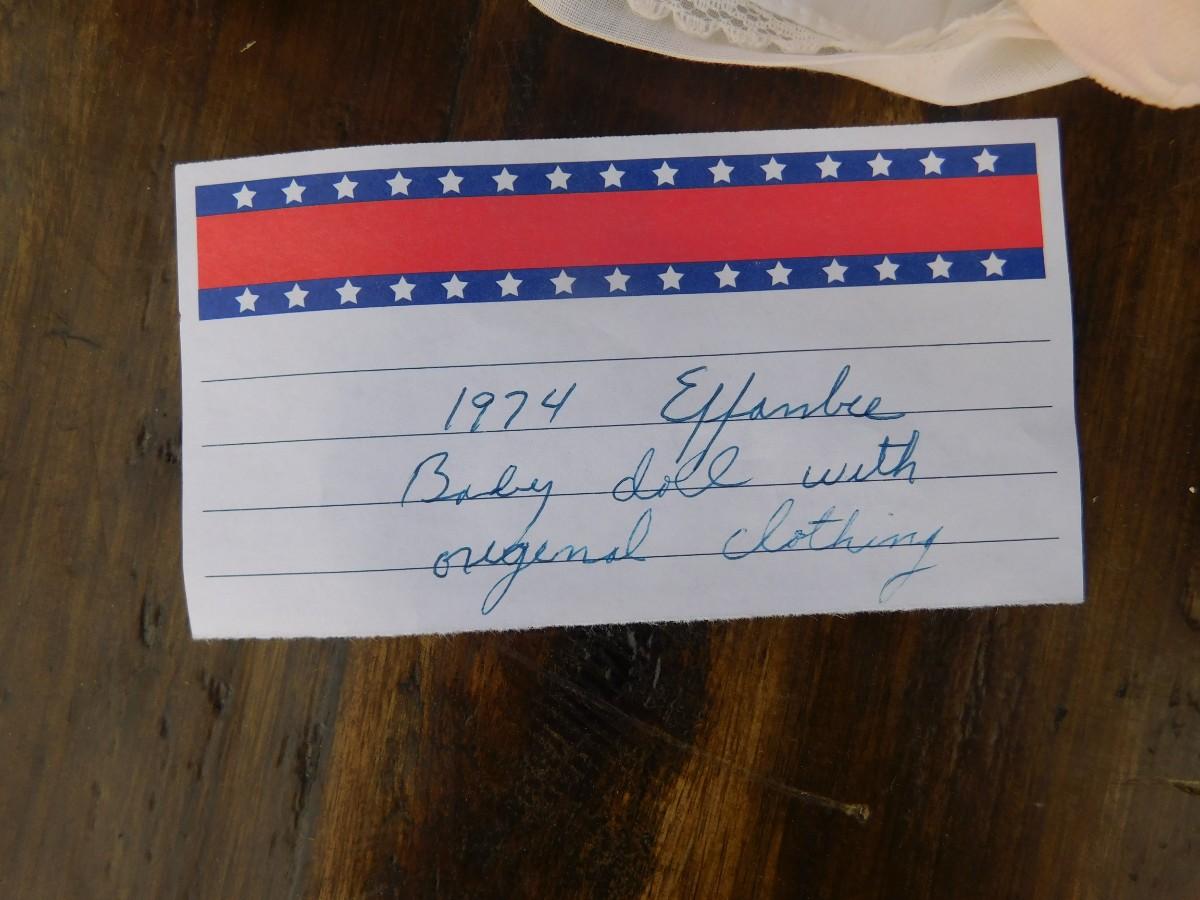 1974 Effanbee
Baby doll with
original clothing